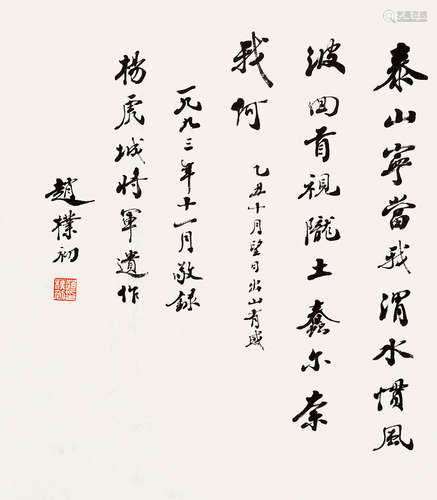 泰山寧當我渭水慣風
波回首視隴土蠢尔奈
我何
乙丑十月望日山有感
一九九三年十一月敬錄
楊虎城將軍遺作
趙樸初